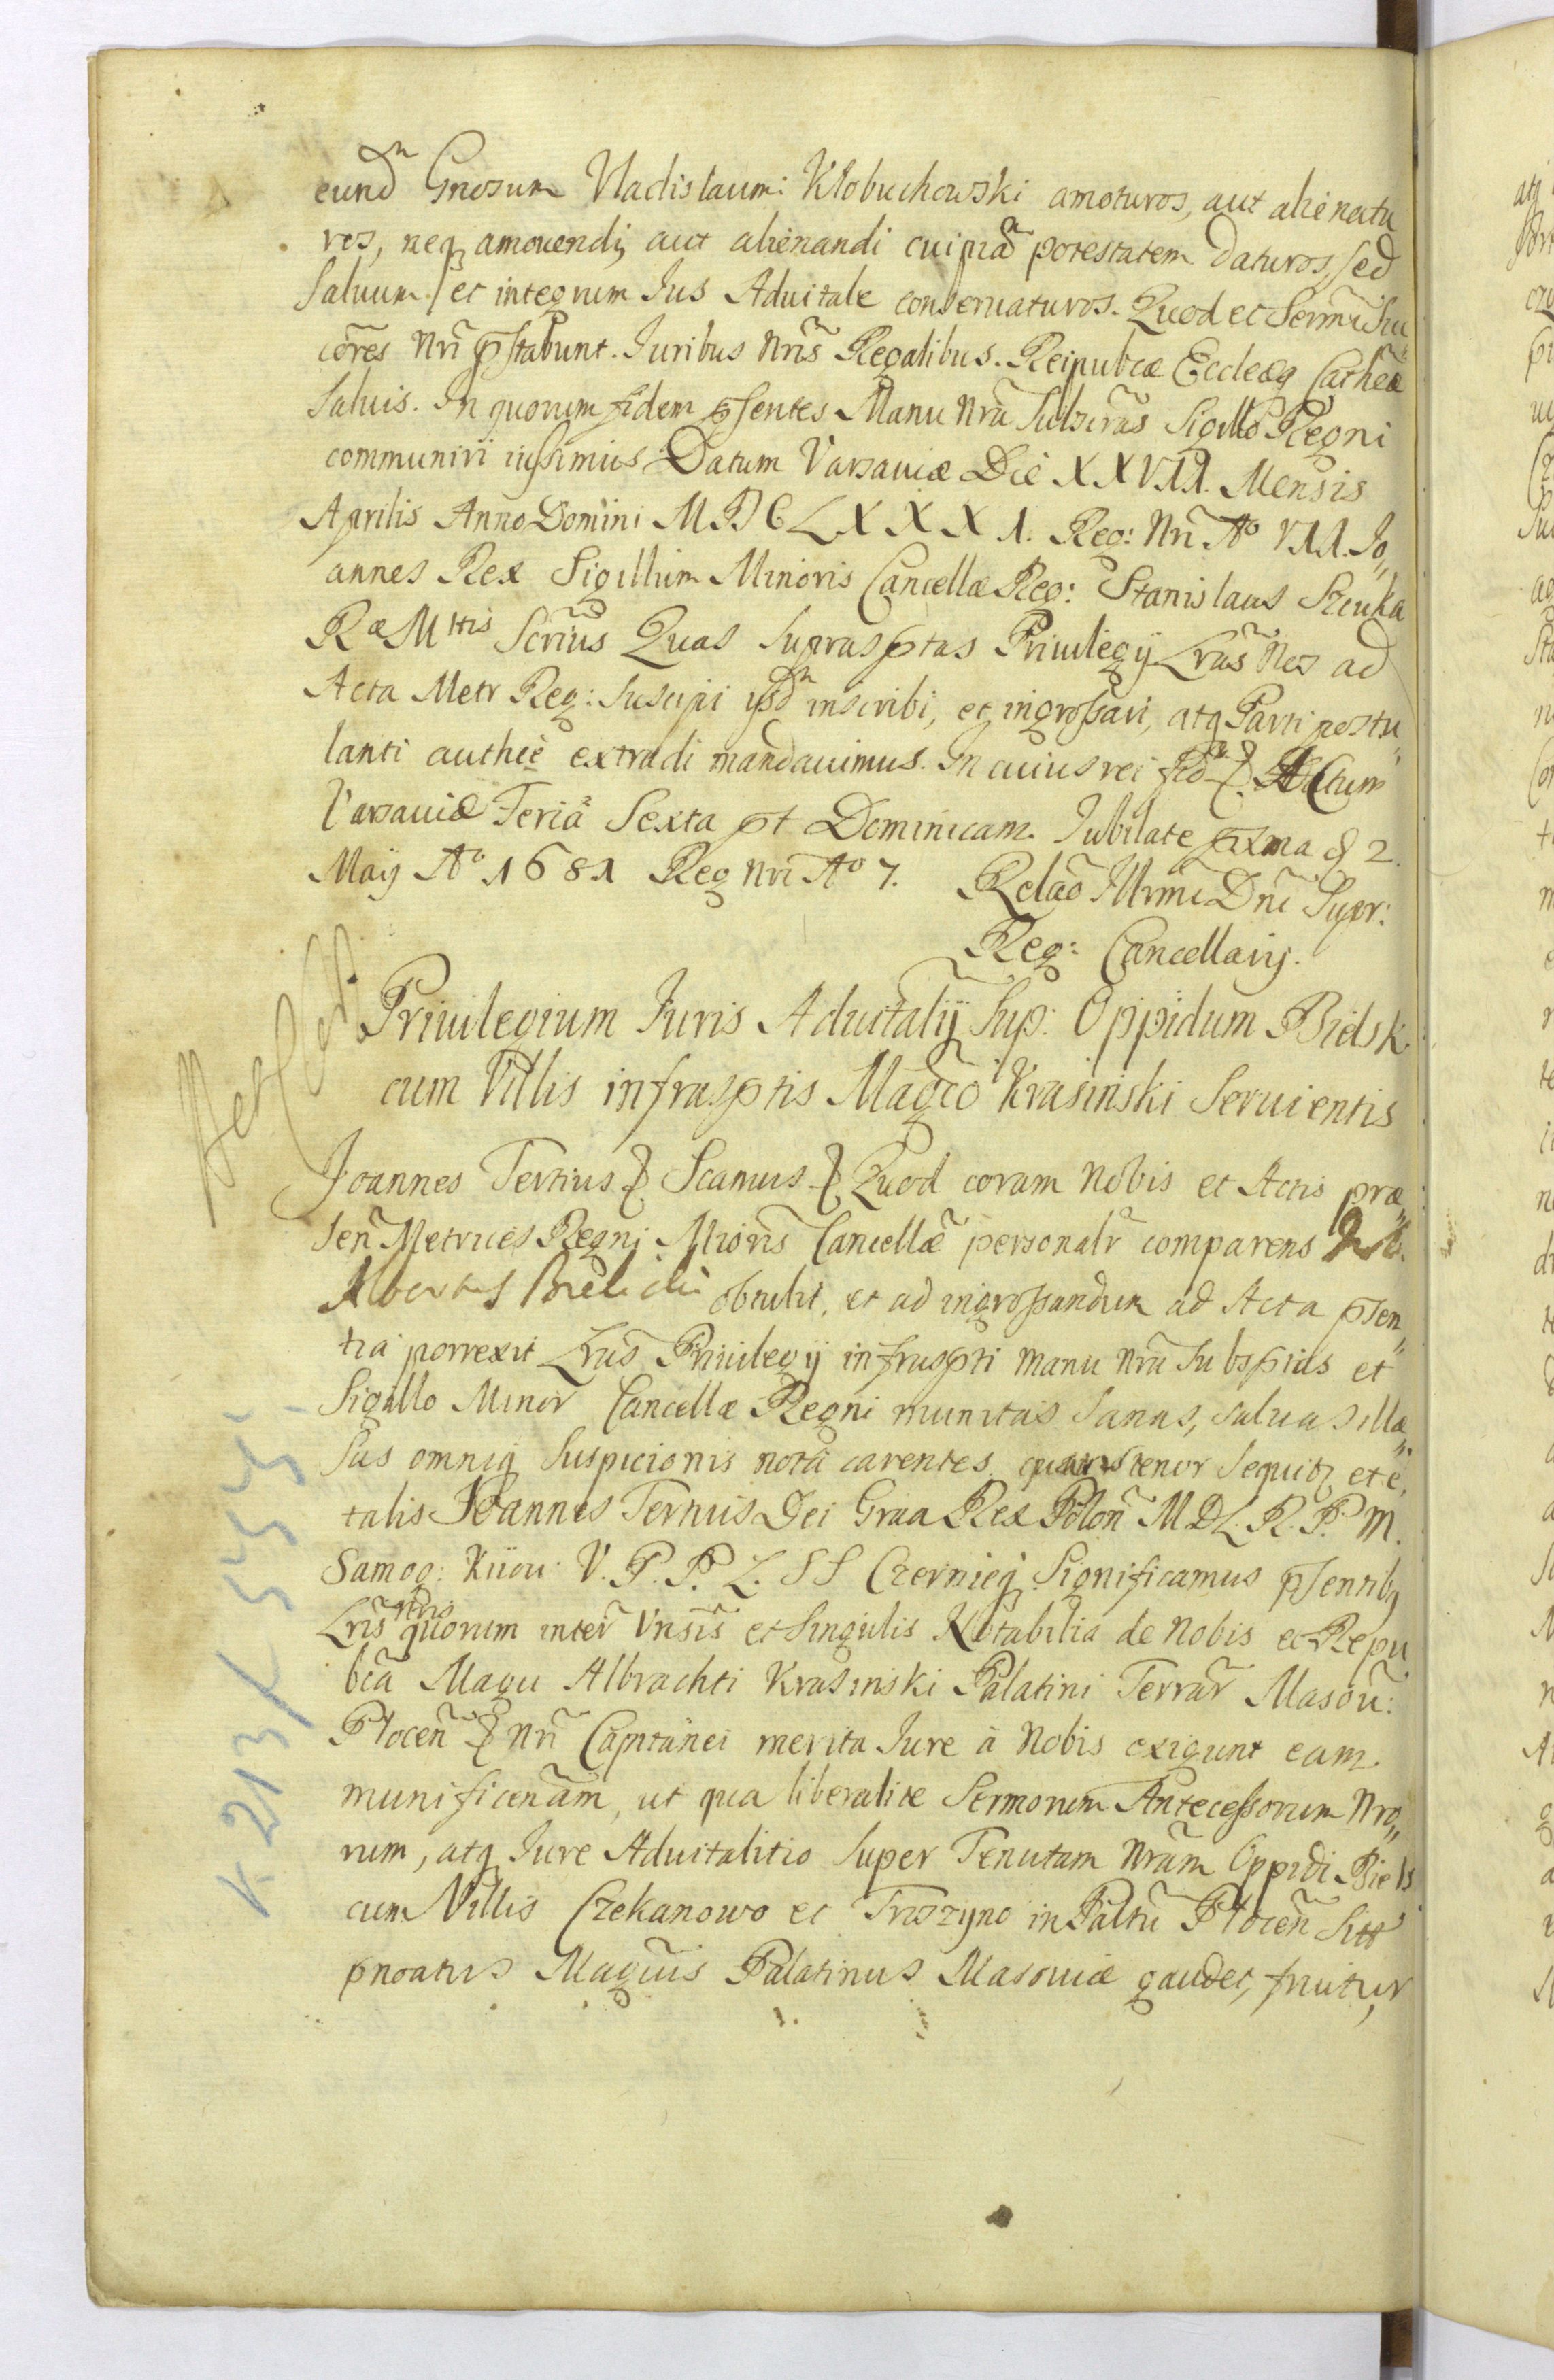 eund̃ Gnosum Vladislaum Kłobuchowski amoturos, aut alienatu
ros, neq amouendi, aut alienandi cuipiã potestatem daturos, sed
saluum et integrum Ius Aduitale conseruaturos. Quod et Sermĩ Su
cõres Nrĩ pstabunt. Iuribus Nrĩs Regalibus. Reipubcæ Ecclæq Cathcæ
saluis. In quorum fidem psentes Manu Nrã Subscrãs Sigillo Regni
communiri iussimus. Datum Varsauiæ Die XXVII. Mensis
Aprilis Anno Domini MDCLXXXI. Reg: Nrĩ Aº VII. Jo,,
annes Rex Sigillum Minoris Cancellæ Reg: Stanislaus Szczuka
Ræ Mttis Scrius Quas suprasptas Priuilegij Lrãs Nos ad
Acta Metr Reg: suscipi ijsd̃ inscribi, et ingrossari, atq Parti postu,,
lanti authẽ extradi mandauimus. In cuius rei fid̃ &. Actum
Varsauiæ Feria Sexta pt Dominicam Iubilate pxma d 2.
Maij Aº 1681 Reg Nrĩ Aº 7. Relaõ Illrmi Dnĩ Supr:
Reg: Cancellarij.
Priuilegium Iuris Aduitalij sup: Oppidum Bielsk
cum Villis infrasptis Magco Krasinski Seruientis
Joannes Tertius & Scamus & Quod coram Nobis et Actis præ,,
sen̄ Metrices Regni Mioris Cancellæ personalr comparens
Albertus obtulit, et ad ingrossandum ad Acta psen,,
tia porrexit Lrãs Priuilegij infraspti manu nrã subsptas et
Sigillo Minor Cancellæ Regni munitas sanas, saluas illæ,,
sas omniq suspicionis notã carentes quarum tenor sequitr et ẽ
talis Joannes Tertius Dei Graa Rex Polon̄ M D L. R. P. M.
Samog: Kijou: V. P. P. L. SS Czernieq Significamus psentib
Lris Nris quorum inter̃ Vnsĩs et singulis Notabilia de Nobis et Repu
bca Magci Albrachti Krasinski Palatini Terrar̃ Masou:
Płocen̄ & Nrĩ Capitanei merita Iure à Nobis exigunt eam
munificenãm, ut qua liberalite Sermorum Antecessorum Nro,,
rum, atq Iure Aduitalitio super Tenutam Nrãm Oppidi Biels
cum Villis Czekanowo et Troszyno in Paltũ Płocen̄ Sitt
pnoatus Magcus Palatinus Masouiæ gaudet, fruitur
K 213/ 5555.